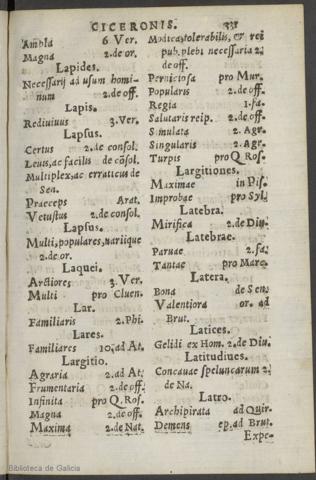 CICERONIS. 331
Ambla 6. Ver.
Magna 2. de or.
Lapides.
Necessarij ad usum homi-
num 2. de off.
Lapis.
Rediuiuus 3. Ver.
Lapsus.
Certus 2. de consol.
Leuis, ac facilis de cõsol.
Multiplex, ac erraticus de
Sen.
Praeceps Arat.
Vetustus 2. de consol.
Lapsus.
Multi, populares, uariique
2. de or.
Laquei.
Arctiores 3. Ver.
Multi pro Cluen.
Lar.
Familiaris 2. Phi.
Lares.
Familiares 10. ad At.
Largitio.
Agraria 2. ad At.
Frumentaria 2. de off.
Infinita pro Q. Ros.
Magna 2. de off.
Maxima 2. de Nat.
Modica, tolerabilis, & rei
pub. plebi necessaria 2.
de off.
Perniciosa pro Mur.
Popularis 2. de off.
Regia 1. fa.
Salutaris reip. 2. de off.
Simulata 2. Agr.
Singularis 2. Agr.
Turpis pro Q. Ros.
Largitiones.
Maximae in Pis.
Improbae pro Syl.
Latebra.
Mirifica 2. de Diu.
Latebrae.
Paruae 2. fa.
Tantae pro Marc.
Latera.
Bona de Sen.
Valentiora or. ad
Brut.
Latices.
Gelidi ex Hom. 2. de Diu.
Latitudiues.
Concauae speluncarum 2.
de Na.
Latro.
Archipirata ad Quir.
Demens ep. ad Brut.
Expe-
Biblioteca de Galicia